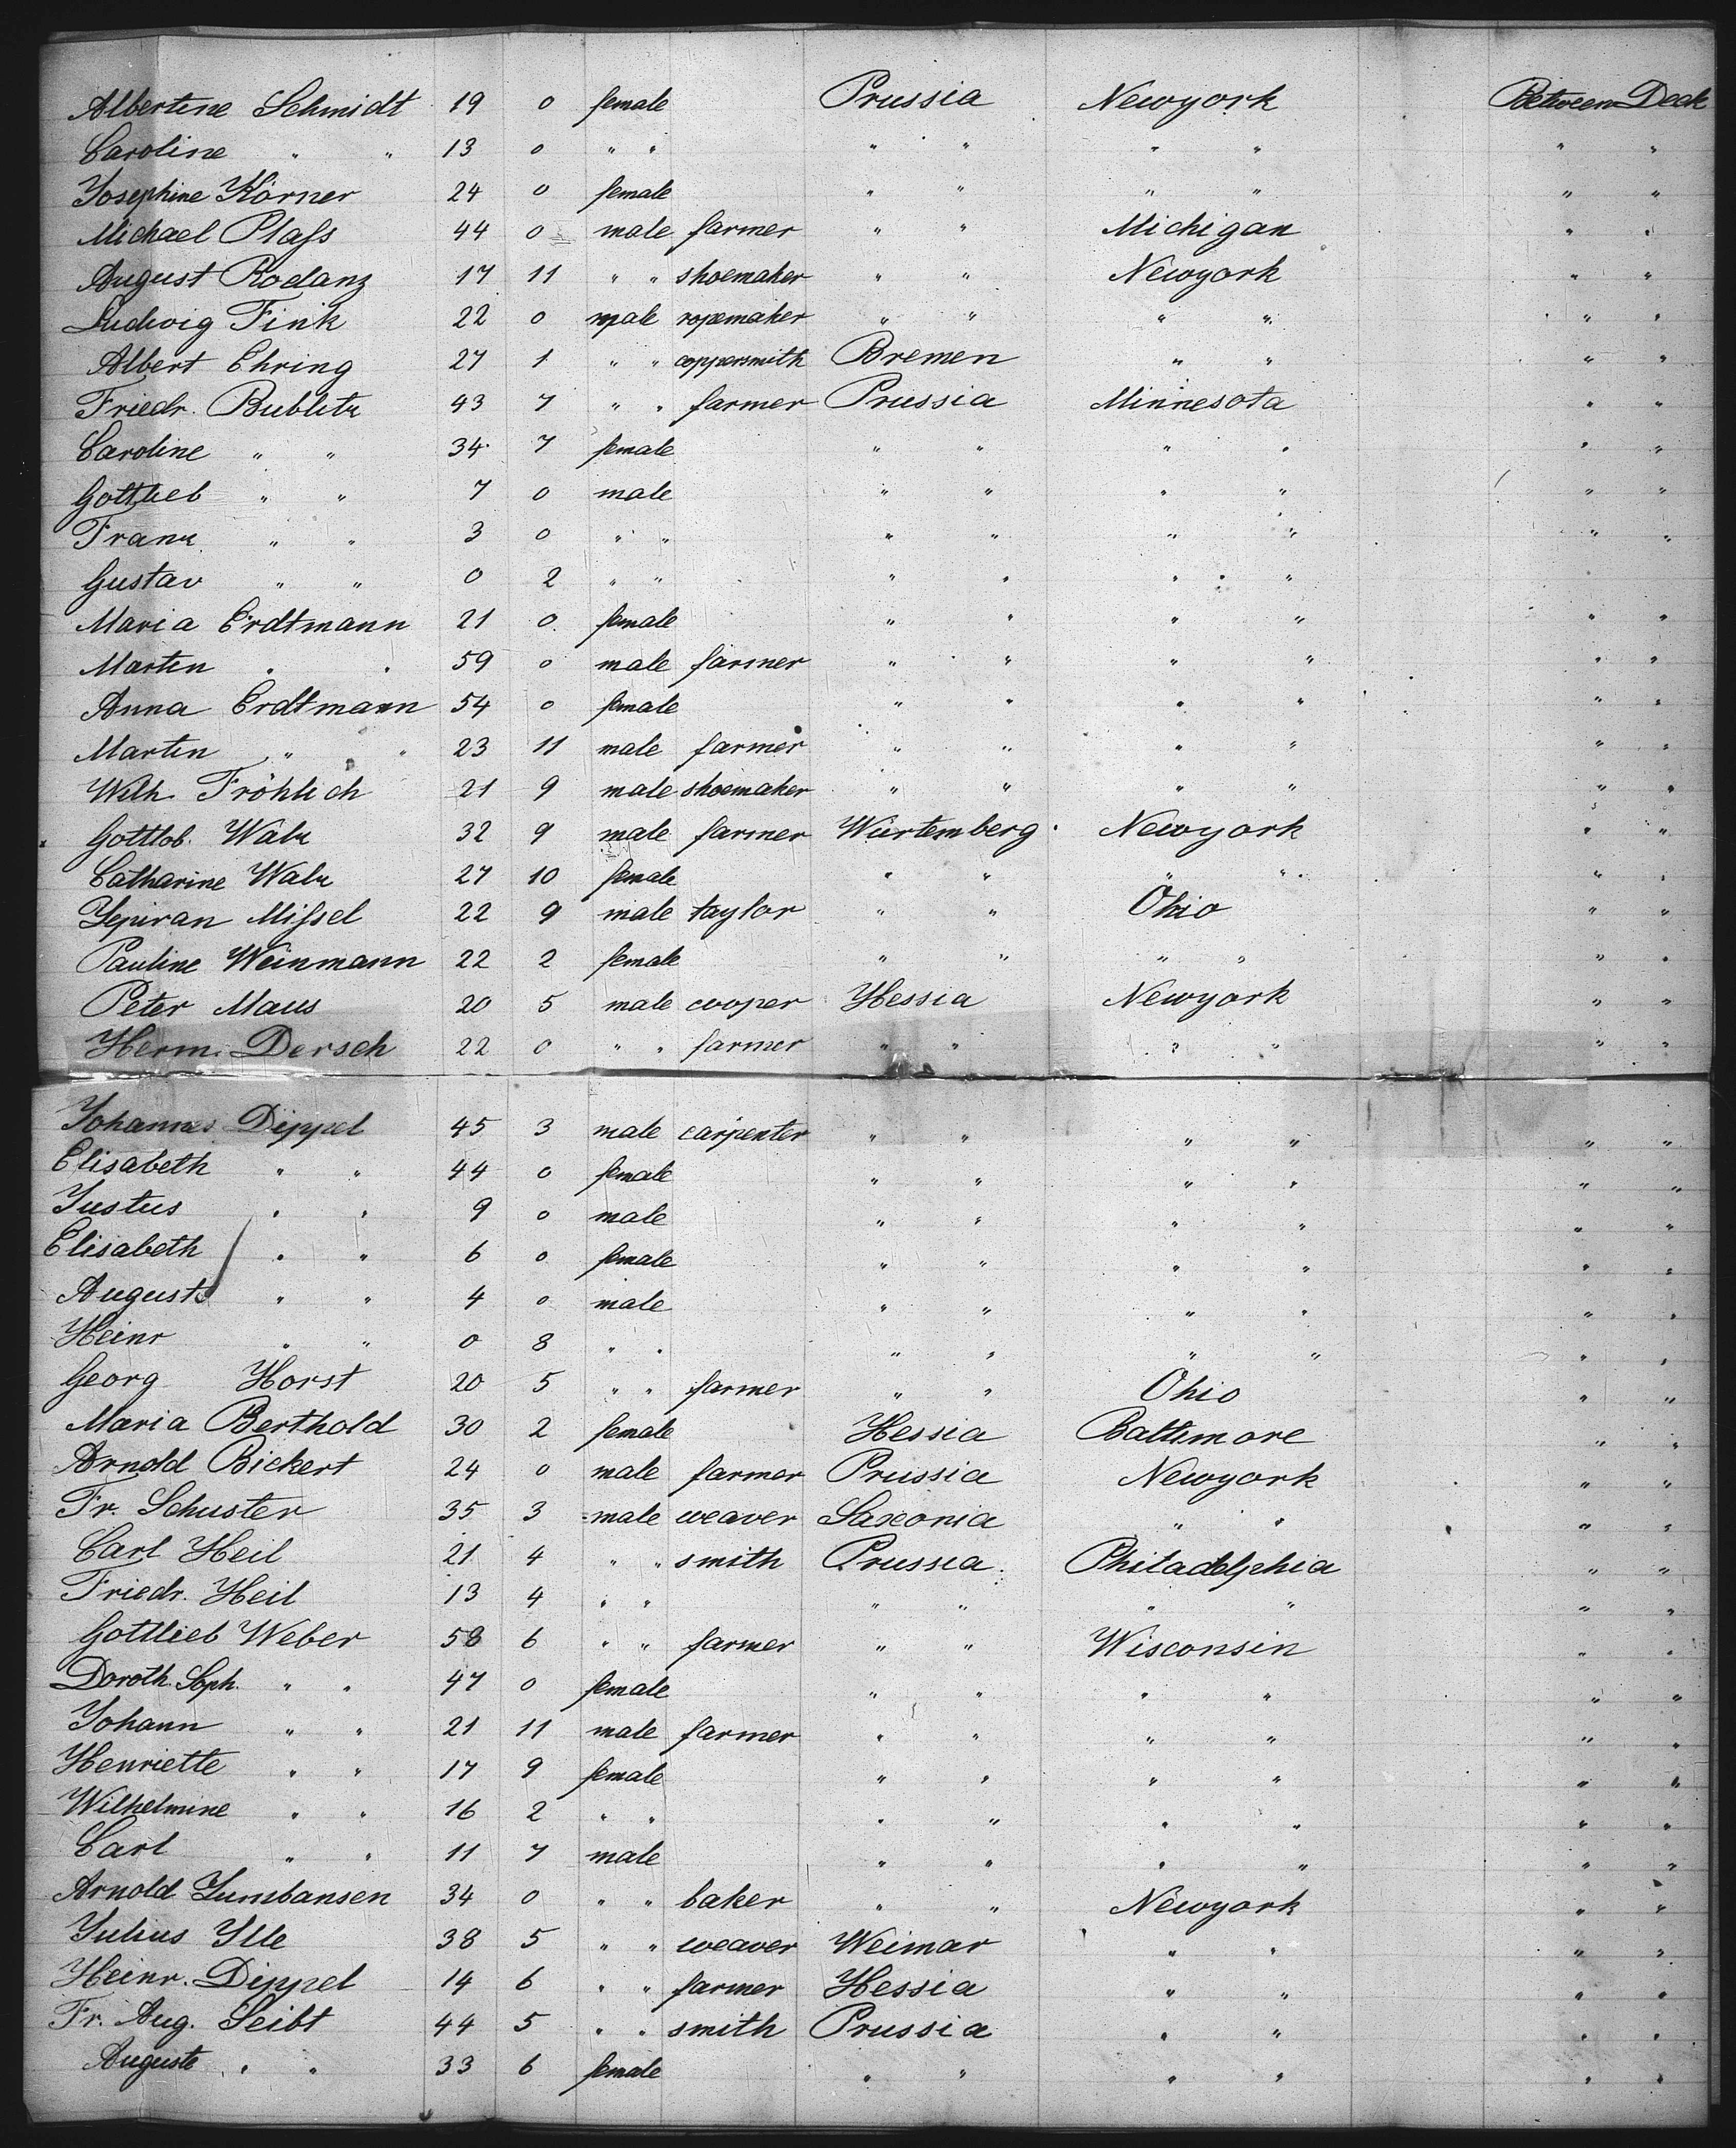 Albertine Schmidt 19 0 female Prussia Newyork Between Deck
Caroline " " 13 0 " " " " " " " "
Josephine Körner 24 0 female " " " " " "
Michael Plaſs 44 0 male farmer " " Michigan " "
August Rodanz 17 11 " " shoemaker " " Newyork " "
Ludwig Fink 22 0 male ropemaker " " " " " "
Albert Ehring 27 1 " " coppersmith Bremen " " " "
Friedr. Bublitz 43 7 " " farmer Prussia Minnesota " "
Caroline " " 34 7 female " " " " " "
Gottlieb " " 7 0 male " " " " " "
Franz " " 3 0 " " " " " " " "
Gustav " " 0 2 " " " " " "
Maria Erdtmann 21 0 female " " " " " "
Martin " " 59 0 male farmer " " " " " "
Anna Erdtmann 54 0 female " " " " " "
Martin " " 23 11 male farmer " " " " " "
Wilh. Fröhlich 21 9 male shoemaker " " " " " "
Gottlob. Walz 32 9 male farmer Würtemberg Newyork " "
Catharine Walz 27 10 female " " " " " "
Miſsel 22 9 male taylor " " Ohio " "
Pauline Weinmann 22 2 female " " " " " "
Peter Maus 20 5 male cooper Hessia Newyork " "
Herm. Dersch 22 0 " " farmer " " " " " "
Johannes Dippel 45 3 male carpenter " " " " " "
Elisabeth " " 44 0 female " " " " " "
Justus " " 9 0 male " " " " " "
Elisabeth " " 6 0 female " " " " " "
August " " 4 0 male " " " " " "
Heinr " " 0 8 " " " " " " " "
Georg Horst 20 5 " " farmer " " Ohio " "
Maria Berthold 30 2 female Hessia Baltimore " "
Arnold Bickert 24 0 male farmer Prussia Newyork " "
Fr. Schuster 35 3 male weaver Saxonia " " " "
Carl Heil 21 4 " " smith Prussia Philadelphia " "
Friedr. Heil 13 4 " " " " " " " "
Gottlieb Weber 58 6 " " farmer " " Wisconsin " "
Doroth. Soph. " " 47 0 female " " " " " "
Johann " " 21 11 male farmer " " " " " "
Henriette " " 17 9 female " " " " " "
Wilhelmine " " 16 2 " " " " " " " "
Carl " " 11 7 male " " " " " "
Arnold Lumbansen 34 0 " " baker " " Newyork " "
Julius Ille 38 5 " " weaver Weimar " " " "
Heinr. Dippel 14 6 " " farmer Hessia " " " "
Fr. Aug. Seibt 44 5 " " smith Prussia " " " "
Auguste " " 33 6 female " " " " " "